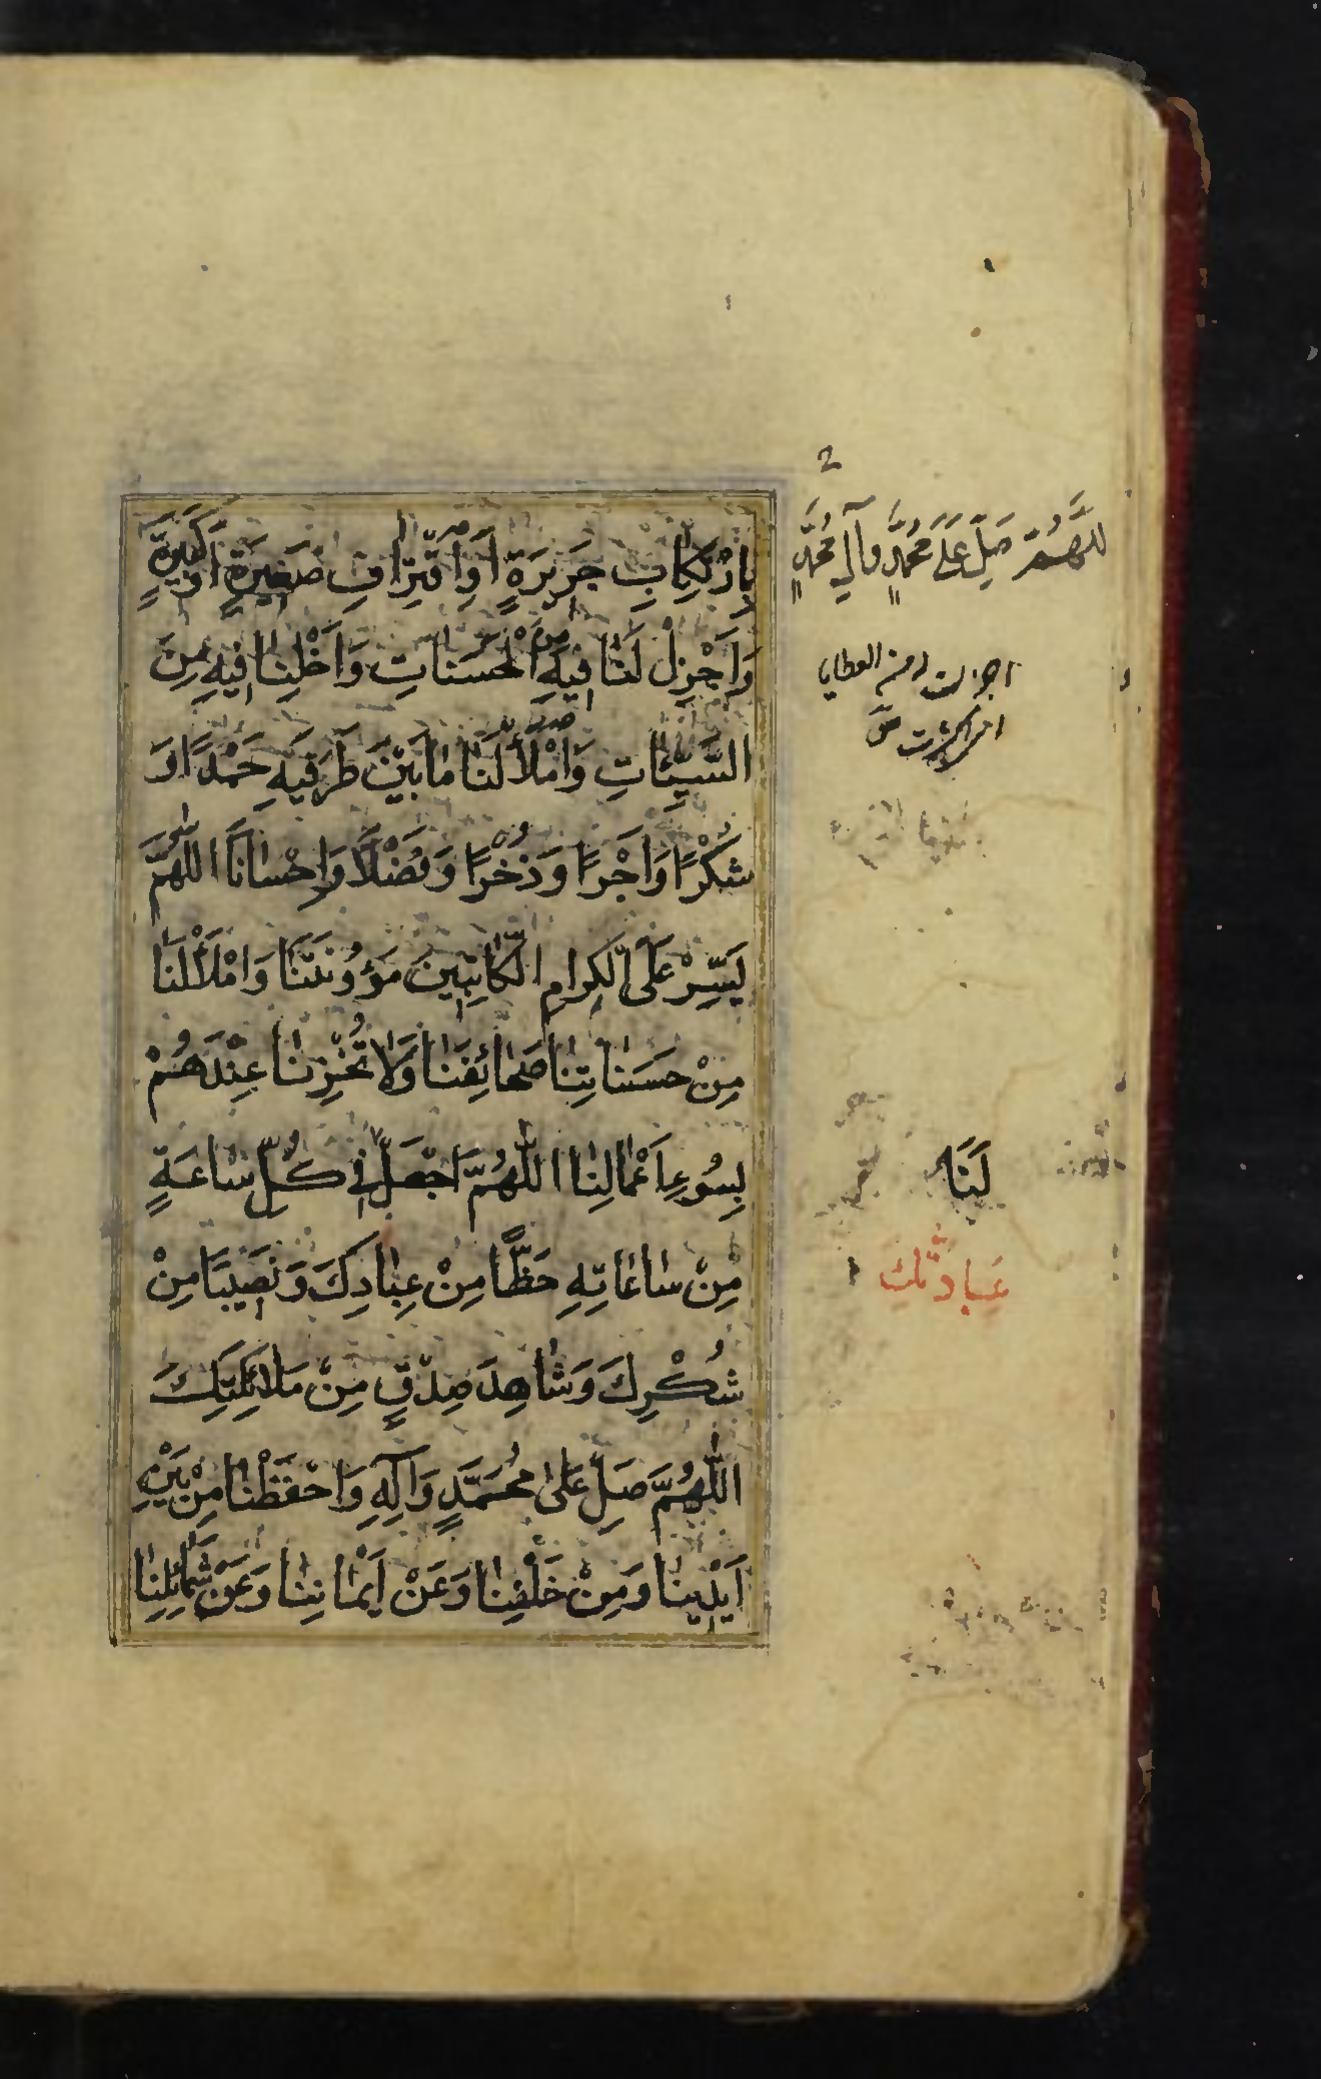 بِارْتِكٰابِ جَرِيرَةٍ اَوِ اقْتِرٰافِ صَغِيرَةٍ اَوْ كَبِيرَةٍ
وَاَجْزِلْ لَنٰا فِيهِ مِنَ الْحَسَنٰاتِ وَاَخْلِنٰا فِيهِ مِنَ
السَّيِّئٰاتِ وَامْلَأْ لَنٰا مٰا بَيْنَ طَرَفَيْهِ حَمْدًا وَ
شُكْرًا وَاَجْرًا وَذُخْرًا وَفَضْلًا وَاِحْسٰانًا اللّٰهُمَّ
يَسِّرْ عَلَى الْكِرٰامِ الْكٰاتِبِينَ مَؤُونَتَنٰا وَامْلَأْ لَنٰا
مِنْ حَسَنٰاتِنٰا صَحٰائِفَنٰا وَلٰا تُخْزِنٰا عِنْدَهُمْ
بِسُوءِ اَعْمٰالِنٰا اللّٰهُمَّ اجْعَلْ فِي كُلِّ سٰاعَةٍ
مِنْ سٰاعٰاتِهِ حَظًّا مِنْ عِبٰادِكَ وَنَصِيبًا مِنْ
شُكْرِكَ وَشٰاهِدَ صِدْقٍ مِنْ مَلٰائِكَتِكَ
اللّٰهُمَّ صَلِّ عَلٰى مُحَمَّدٍ وَآلِهِ وَاحْفَظْنٰا مِنْ بَيْنِ
اَيْدِينٰا وَمِنْ خَلْفِنٰا وَعَنْ اَيْمٰانِنٰا وَعَنْ شَمٰائِلِنٰا
اللَّهُمَّ صَلِّ عَلَى مُحَمَّدٍ وَآلِ مُحَمَّدٍ
من العطايا
لَنَا
عِبادتك